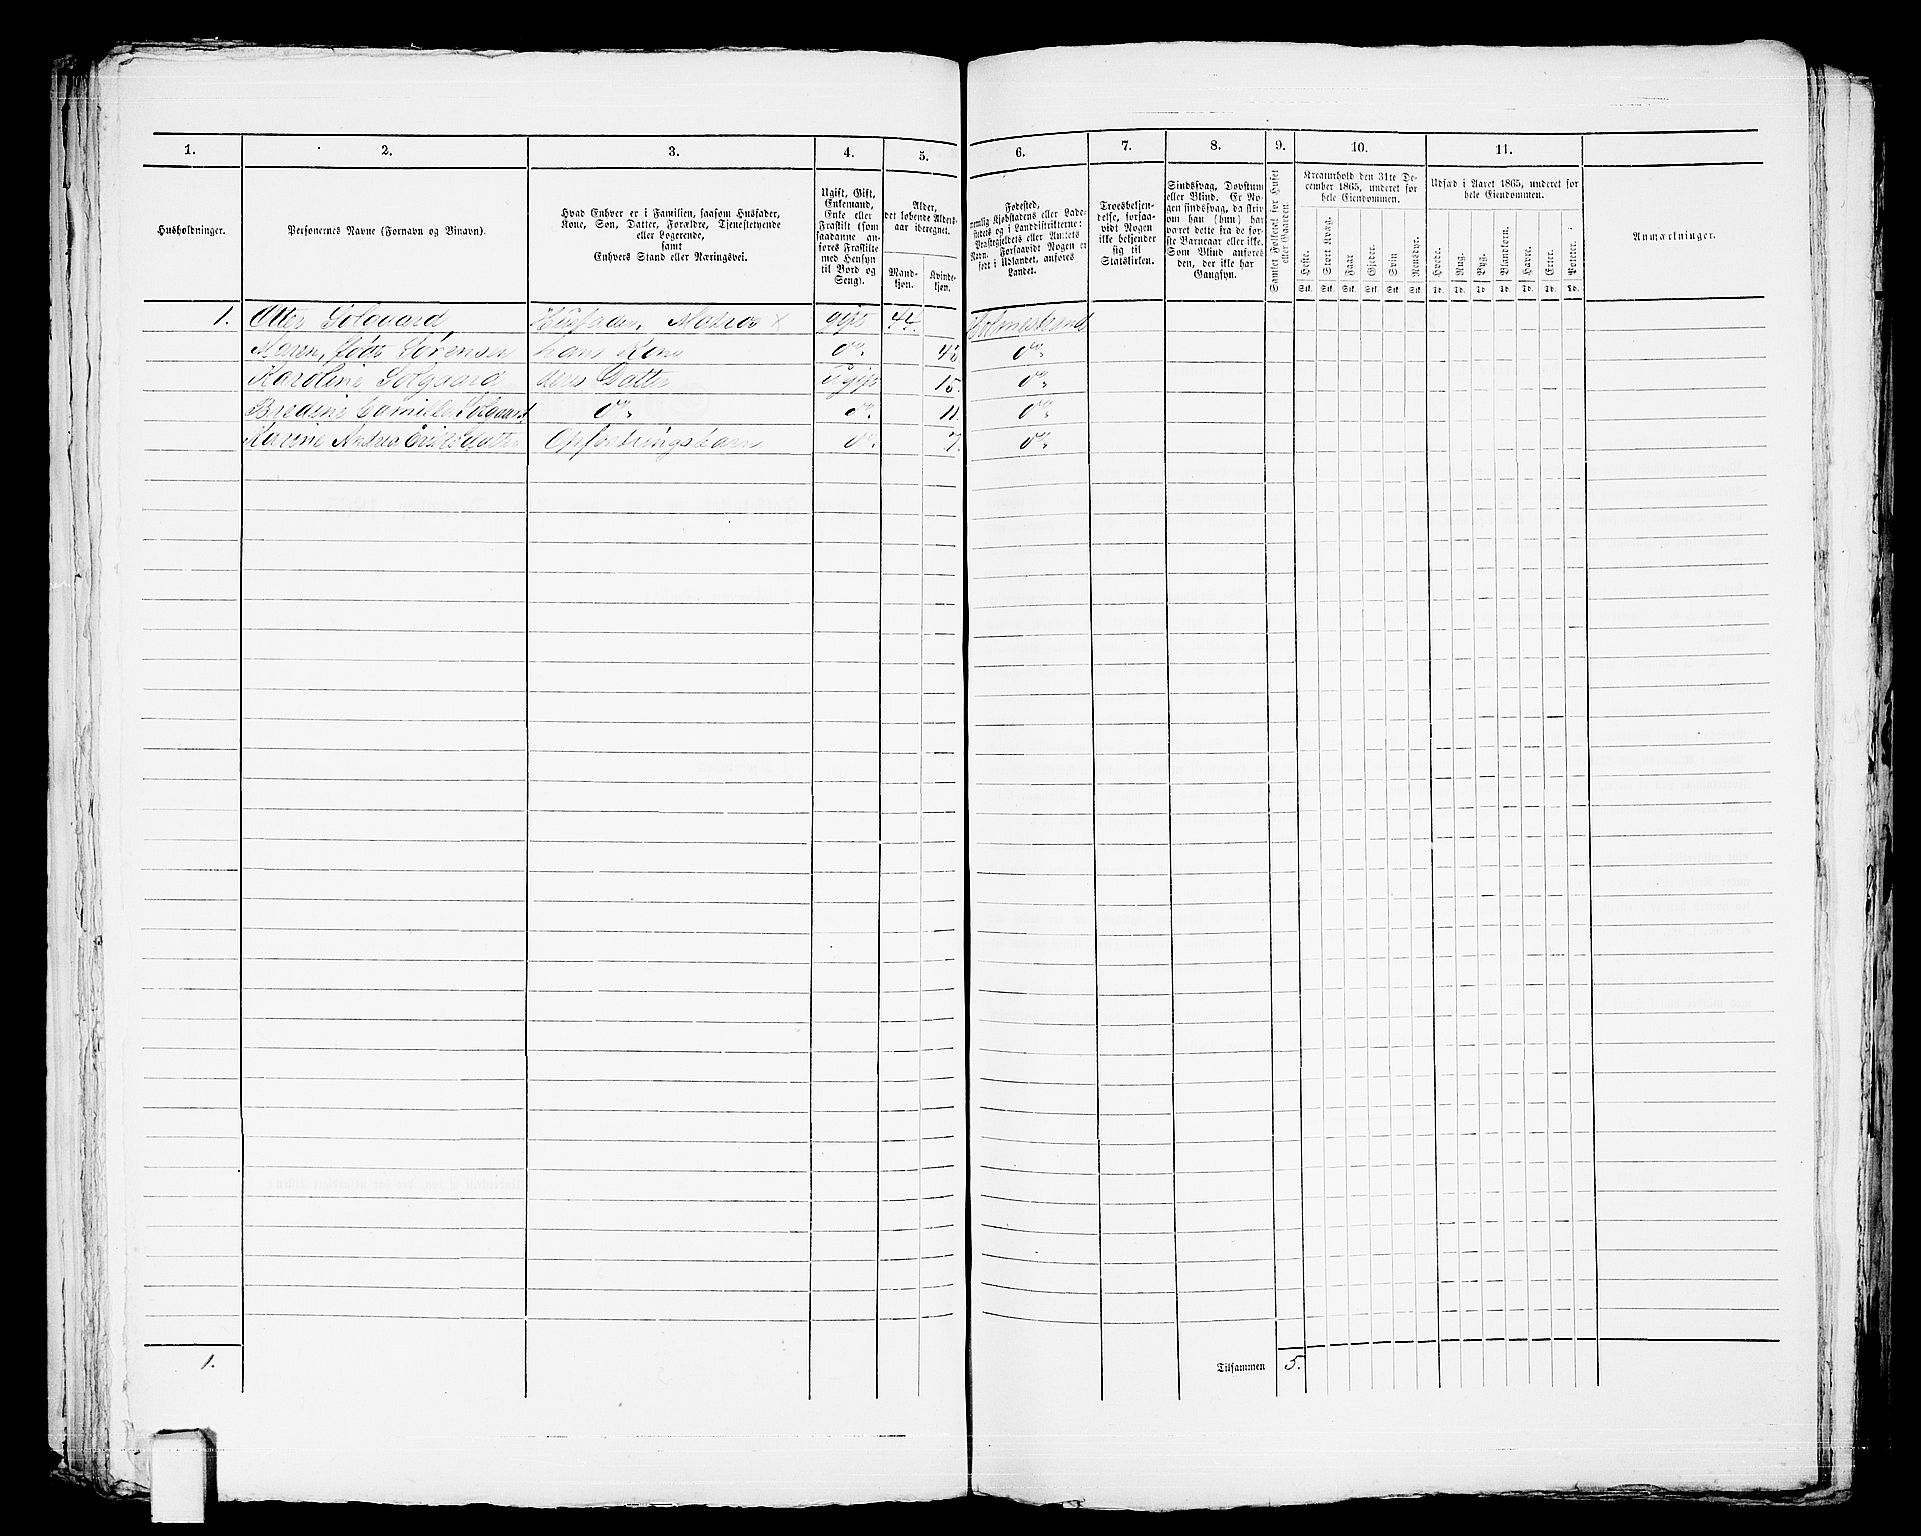 1. 2. 3. 4. 5. 6. 7. 8. 9. 10. 11.
Husholdninger.
Personernes Navne (Fornavn og Binavn).
Hvad Enhver er i Familien, saasom Husfader,
Kone, Søn, Datter, Forældre, Tjenestetyende
eller Logerende,
samt
Enhvers Stand eller Næringsvei.
Ugift, Gift,
Enkemand,
Enke eller
Fraskilt (som
saadanne an-
føres Fraskilte
med Hensyn
til Bord og
Seng).
Alder,
det løbende Alders-
aar iberegnet.
Mand-
kjøn.
Kvinde-
kjøn.
Fødested,
nemlig Kjøbstadens eller Lade-
stedets og i Landdistrikterne:
Præstegjeldets eller Amtets
Navn. Forsaavidt Nogen er
født i Udlandet, anføres
Landet.
Troesbekjen-
delse, forsaa-
vidt Nogen
ikke bekjender
sig til
Statskirken.
Sindssvag, Døvstum
eller Blind. Er No-
gen sindssvag, da skriv
om han (hun) har
været dette fra de før-
ste Barneaar eller ikke.
Som Blind anføres
den, der ikke har
Gangsyn.
Samlet Folketal for Huset
eller Gaarden.
Kreaturhold den 31te De-
cember 1865, underet for
hele Eiendommen.
Heste. Stort Kvæg. Faar Gjeder. Svin Rensdyr.
Stk. Stk. Stk. Stk. Stk. Stk.
Udsæd i Aaret 1865, underet for
hele Eiendommen.
Hvede. Rug. Byg. Blandkorn. Havre. Erter. Poteter.
Td. Td. Td Td. Td. Td. Td.
Anmærkninger.
1. Otter Solgaard Husfader, Matros x gift 44 Holmestrand
Maren, født Sørensen hans Kone do. do.
Karoline Solgaard deres Datter ugift 15. do.
Bredine Camilla Solgaard do. do. 11. do.
Karine Andrea Opfostringsbarn do. 7. do.
1. Tilsammen 5.